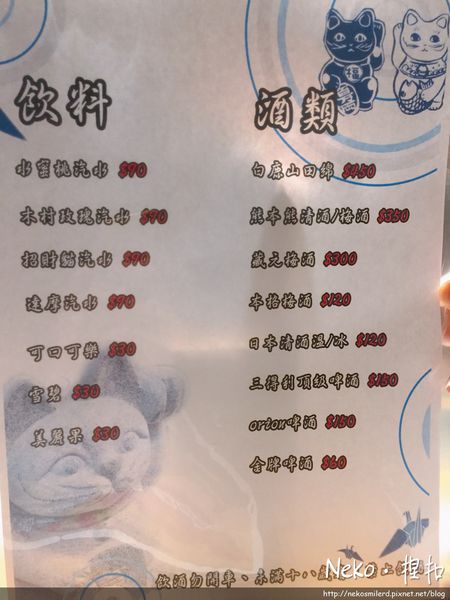 飲料
水蜜桃汽水 $90
木村玫瑰汽水 $90
招財貓汽水 $90
達摩汽水 $90
可口可樂 $30
雪碧 $30
美粒果 $30
酒類
白鹿山田錦 $450
熊本熊清酒/梅酒 $350
藏元梅酒 $300
本格梅酒 $120
日本清酒溫/冰 $120
三得利頂級啤酒 $150
orion啤酒 $150
金牌啤酒 $60
福
飲酒勿開車、未滿十八歲
Neko。捏扣
http://nekosmilerd.pixnet.net/blog